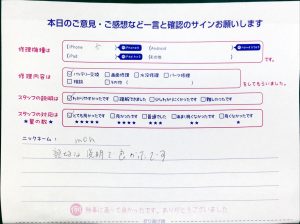 本日のご意見・ご感想など一言と確認のサインお願いします
修理機種は
iPhone
iPad
Android
その他
です。
修理内容は
バッテリー交換 画面修理 水没修理 パーツ修理
相談 その他（ ）
をしてもらいました。
スタッフの説明は
わかりやすかったです 理解できました 少しわかりにくかったです 難しかったです
スタッフの対応は
★星の数★
とても良かったです 良かったです 普通でした あまり良くなかったです 良くなかったです
★★★★★ ★★★★ ★★★ ★★ ★
ニックネーム：
親切な説明で
無事に直って良かったです。ありがとうございました